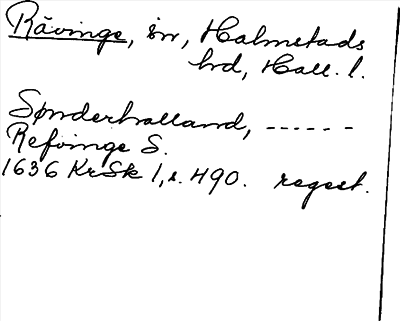 Råvinge, sn, Halmstads
hrd, Hall. l.
Sønderhalland, ------
Refvinge S.
1636 KrSk 1, s. 490. regest.